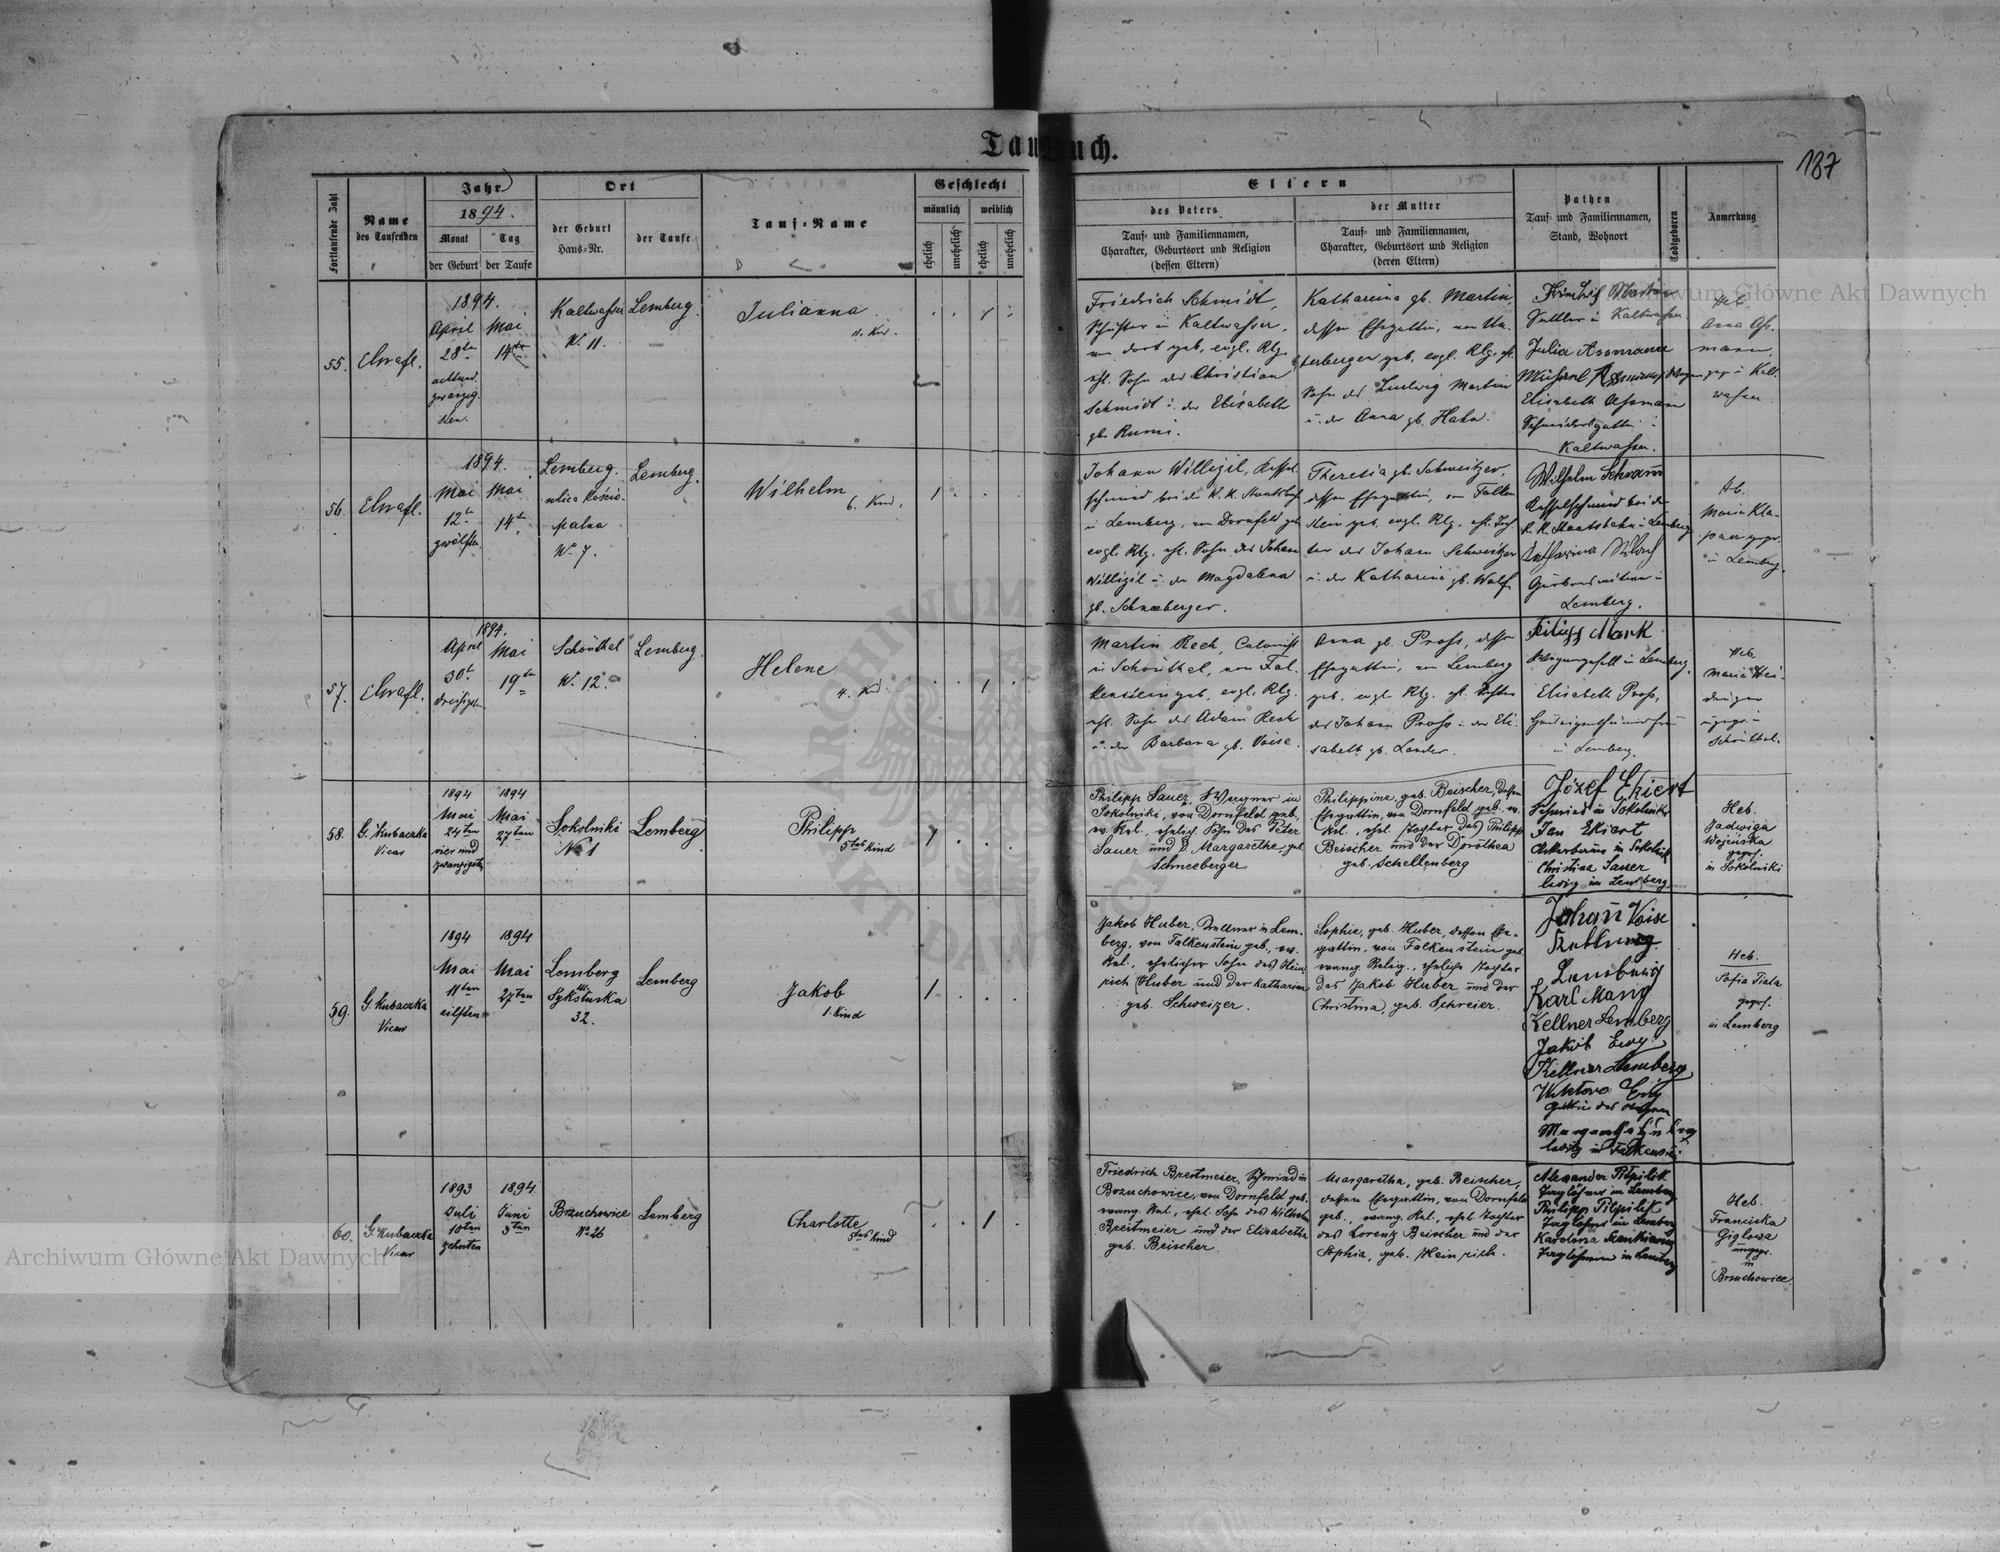 Taufbuch.
187
Fortlaufende Zahl
Name
des Taufenden
Jahr
1894.
Monat
Tag
der Geburt
der Taufe
Ort
der Geburt
Haus-Nr.
der Taufe
Tauf-Name
Geschlecht
männlich
weiblich
ehelich
unehelich
ehelich
unehelich
Eltern
des Vaters
Tauf- und Familiennamen,
Charakter, Geburtsort und Religion
(dessen Eltern)
der Mutter
Tauf- und Familiennamen,
Charakter, Geburtsort und Religion
(deren Eltern)
Pathen
Tauf- und Familiennamen,
Stand, Wohnort
Todtgeboren
Anmerkung
55.
1894.
April
28ten
Mai
14ten
Kaltwasser
N. 11.
Lemberg.
Julianna
11. Kind.
Friedrich Schmidt,
in Kaltwasser,
dort geb, evgl. Rlg.
ehl. Sohn des Christian
Schmidt u. der Elisabeth
gb. Rumi.
Katharina gb. Martin,
dessen Ehegattin, von Un-
terbergen geb. evgl. Rlg. ehl.
des Ludwig Martin
u. der Anna gb. Hahn.
Sattler in Kaltwasser
Julia Assmann
Elisabeth Assmann
Kaltwasser.
Heb.
Anna Ass-
mann
56.
1894.
Mai
12t
zwölften
Mai
14t
Lemberg.
ulica Kościo-
palna
No 7.
Lemberg.
Wilhelm
6. Kind.
Johann Willigil, Kessel
schmied bei der K. K. Staatsbahn
in Lemberg, von Dornfeld geb
evgl. Rlg. ehl. Sohn des Johann
Willigil u. der Magdalena
gb. Schneeberger.
Theresia gb. Schweitzer,
dessen Ehegattin, von Falken
stein geb. evgl. Rlg. ehl. Toch
ter des Johann Schweitzer
u. der Katharina gb. Wolf.
Wilhelm Schramm
Kesselschmied bei der
k. k. Staatsbahn in Lemberg
Katharina
Lemberg.
Hb.
Maria Kla-
in Lemberg.
57.
1894.
April
30t
dreißigsten
Mai
19ten
Schönthal
N. 12.
Lemberg.
Helene
4. Kind.
Martin Rech, Colonist
in Schönthal, von Fal-
kenstein geb, evgl. Rlg.
ehl. Sohn des Adam Rech
u. der Barbara gb. Voise.
Anna gb. Pross, dessen
Ehegattin, von Lemberg
geb. evgl. Rlg. ehl. Tochter
des Johann Pross u. der Eli-
sabeth gb. Lander.
Filipp Mank
in Lemberg.
Elisabeth Pross,
in Lemberg.
Heb.
Maria
Schönthal.
58.
G. Kubaczka
Vicar
1894
Mai
24ten
vier und
zwanzigsten
1894
Mai
27ten
Sokolniki
No 1
Lemberg
Philipp
5tes Kind
Philipp Sauer, Wagner in
Sokolniki, von Dornfeld geb.
ev. Rel., ehelich. Sohn des Peter
Sauer und d. Margarethe, geb.
Schneeberger
Philippine, geb. Beischer, dessen
Ehegattin, von Dornfeld geb. ev.
Rel., ehel. Tochter des Philipp
Beischer und der Dorothea
geb. Schellenberg
Józef Ekiert
Schmied in Sokolniki
Jan Ekiert
Ackerbauer in Sokolnik
Christina Sauer
ledig in Lemberg
Heb.
Jadwiga
Wojeńska
geprf.
in Sokolniki
59.
G. Kubaczka
Vicar
1894
Mai
11ten
eilften
1894
Mai
27ten
Lemberg
ul.
Sykstuska
32.
Lemberg
Jakob
1. Kind
Jakob Huber, Kellner in Lem-
berg, von Falkenstein geb., ev.
Rel., ehelicher Sohn des Hein
rich Huber und der Katharina
geb. Schweizer.
Sophie, geb. Huber, dessen Ehe-
gattin, von Falkenstein geb
evang. Relig., eheliche Tochter
des Jakob Huber und der
Christina, geb. Schreier.
Johann Voise
Lemberg
Karl Mang
Kellner Lemberg
Jakob
Kellner Lemberg
ledig in Falkenstein
Heb.
Sofia Tiala
geprf.
in Lemberg
60.
G. Kubaczka
Vicar
1893
Juli
10ten
zehnten
1894
Juni
3ten
Brzuchowice
No 26
Lemberg
Charlotte
5tes Kind
Friedrich Breitmeier, Schmied in
Brzuchowice, von Dornfeld geb.
evang. Rel., ehel. Sohn des Wilhelm
Breitmeier und der Elisabetha
geb. Beischer.
Margaretha, geb. Beischer,
dessen Ehegattin, von Dornfeld
geb., evang. Rel., ehel. Tochter
des Lorentz Beischer und der
Sophia, geb. Heinrich.
Alexander Pilpilik
Taglöhner in Lemberg
Philipp Pilpilik
Taglöhner in Lemberg
Karolina
Taglöhnerin in Lemberg
Heb.
Franciska
Giglowa
ungepr.
in
Brzuchowice.
Archiwum Główne Akt Dawnych
Archiwum Główne Akt Dawnych
ARCHIWUM GŁÓWNE AKT DAWNYCH